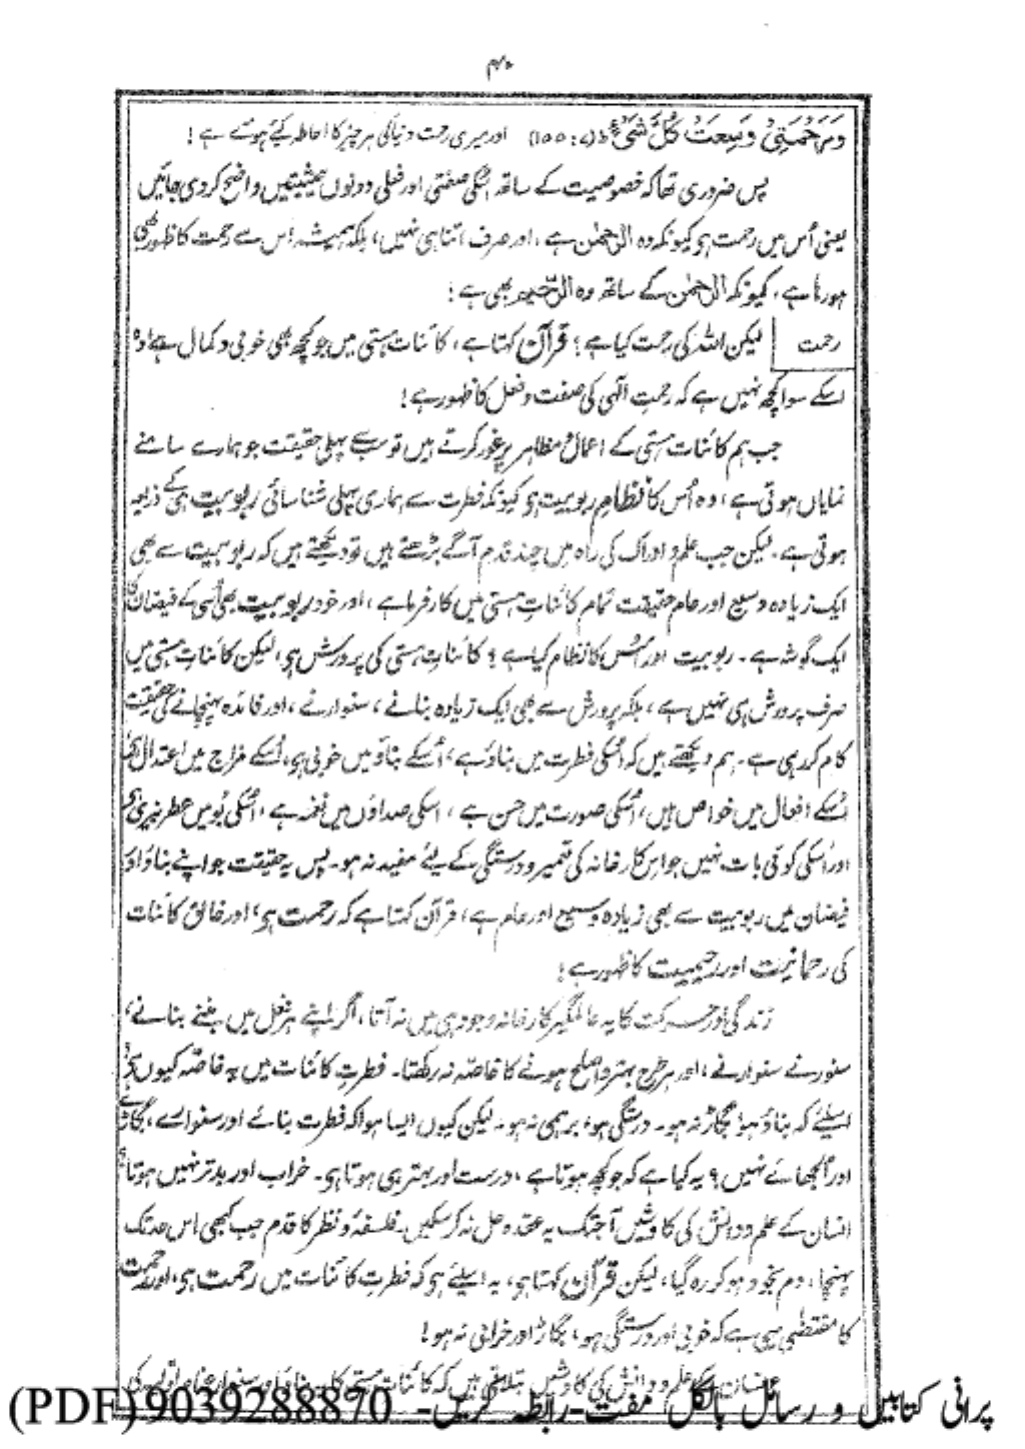 ۴۰
وَرَحْمَتِیْ وَسِعَتْ کُلَّ شَیْءٍ (۷: ۱۵۵) اور میری رحمت دنیا کی ہر چیز کا احاطہ کیے ہوئے ہے!
پس ضروری تھا کہ خصوصیت کے ساتھ اسکی صفتی اور فعلی دونوں حیثیتیں واضح کردی جائیں
یعنی اُس میں رحمت ہو کیونکہ وہ الرحمٰن ہے، اور صرف اتنا ہی نہیں، بلکہ ہمیشہ اس سے رحمت کا ظہور بھی
ہو رہا ہے، کیونکہ الرحمٰن کے ساتھ وہ الرّحیم بھی ہے!
رحمت | لیکن اللہ کی رحمت کیا ہے؟ قرآن کہتا ہے، کائنات ہستی میں جو کچھ بھی خوبی و کمال ہے، وہ
اسکے سوا کچھ نہیں ہے کہ رحمتِ الٰہی کی صفت و فعل کا ظہور ہے!
جب ہم کائنات ہستی کے اعمال و مظاہر پر غور کرتے ہیں تو سب سے پہلی حقیقت جو ہمارے سامنے
نمایاں ہوتی ہے، وہ اُس کا نظامِ ربوبیت ہو کیونکہ فطرت سے ہماری پہلی شناسائی ربوبیت ہی کے ذریعہ
ہوتی ہے۔ لیکن جب علم و ادراک کی راہ میں چند قدم آگے بڑھتے ہیں تو دیکھتے ہیں کہ ربوبیت سے بھی
ایک زیادہ وسیع اور عام حقیقت تمام کائناتِ ہستی میں کارفرما ہے، اور خود ربوبیت بھی اُسی کے فیضان کا
ایک گوشہ ہے۔ ربوبیت اور اُس کا نظام کیا ہے؟ کائناتِ ہستی کی پرورش ہو، لیکن کائناتِ ہستی میں
صرف پرورش ہی نہیں ہے، بلکہ پرورش سے بھی ایک زیادہ بنانے، سنوارنے، اور فائدہ پہنچانے کی حقیقت
کام کر رہی ہے۔ ہم دیکھتے ہیں کہ اُسکی فطرت میں بناؤ ہے، اُسکے بناؤ میں خوبی ہو، اُسکے مزاج میں اعتدال ہو
اُسکے افعال میں خواص ہیں، اُسکی صورت میں حسن ہے، اسکی صداؤں میں نغمہ ہے، اُسکی بُو میں عطر بیزی ہو
اور اُسکی کوئی بات نہیں جو اِس کارخانہ کی تعمیر و درستگی کے لیے مفید نہ ہو۔ پس یہ حقیقت جو اپنے بناؤ اور
فیضان میں ربوبیت سے بھی زیادہ وسیع اور عام ہے، قرآن کہتا ہے کہ رحمت ہو، اور خالقِ کائنات
کی رحمانیت اور رحیمیت کا ظہور ہے!
زندگی اور حرکت کا یہ عالمگیر کارخانہ وجود ہی میں نہ آتا، اگر اپنے ہر فعل میں بننے بنانے،
سنورنے سنوارنے، اور ہر طرح بہتر و اصلح ہونے کا خاصّہ نہ رکھتا۔ فطرتِ کائنات میں یہ خاصّہ کیوں ہو؟
اسلیئے کہ بناؤ ہو، بگاڑ نہ ہو۔ درستگی ہو، برہمی نہ ہو۔ لیکن کیوں ایسا ہوا کہ فطرت بنائے اور سنوارے، بگاڑے
اور اُلجھائے نہیں؟ یہ کیا ہے کہ جو کچھ ہوتا ہے، درست اور بہتر ہی ہوتا ہو۔ خراب اور بدتر نہیں ہوتا؟
انسان کے علم و دانش کی کاوشیں آجتک یہ عقدہ حل نہ کرسکیں۔ فلسفۂ و نظر کا قدم جب کبھی اس حد تک
پہنچا، دم بخود ہو کر رہ گیا، لیکن قرآن کہتا ہو، یہ اسلیئے ہو کہ فطرتِ کائنات میں رحمت ہو، اور رحمت
کا مقتضیٰ یہی ہے کہ خوبی اور درستگی ہو، بگاڑ اور خرابی نہ ہو!
انسان کے علم و دانش کی کاوشیں بتلاتی ہیں کہ کائنات ہستی کا یہ بناؤ اور سنوار عناصر اولیہ کی
پرانی کتابیں و رسائل بالکل مفت-رابطہ کریں- 9039288870 (PDF)